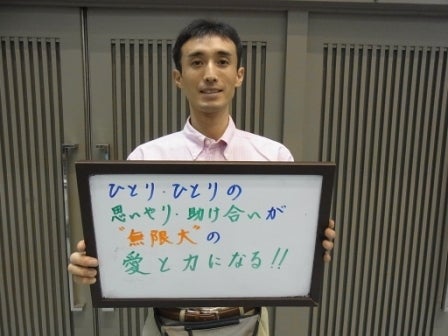 ひとり・ひとりの
思いやり・助け合いが
"無限大"の
愛と力になる!!